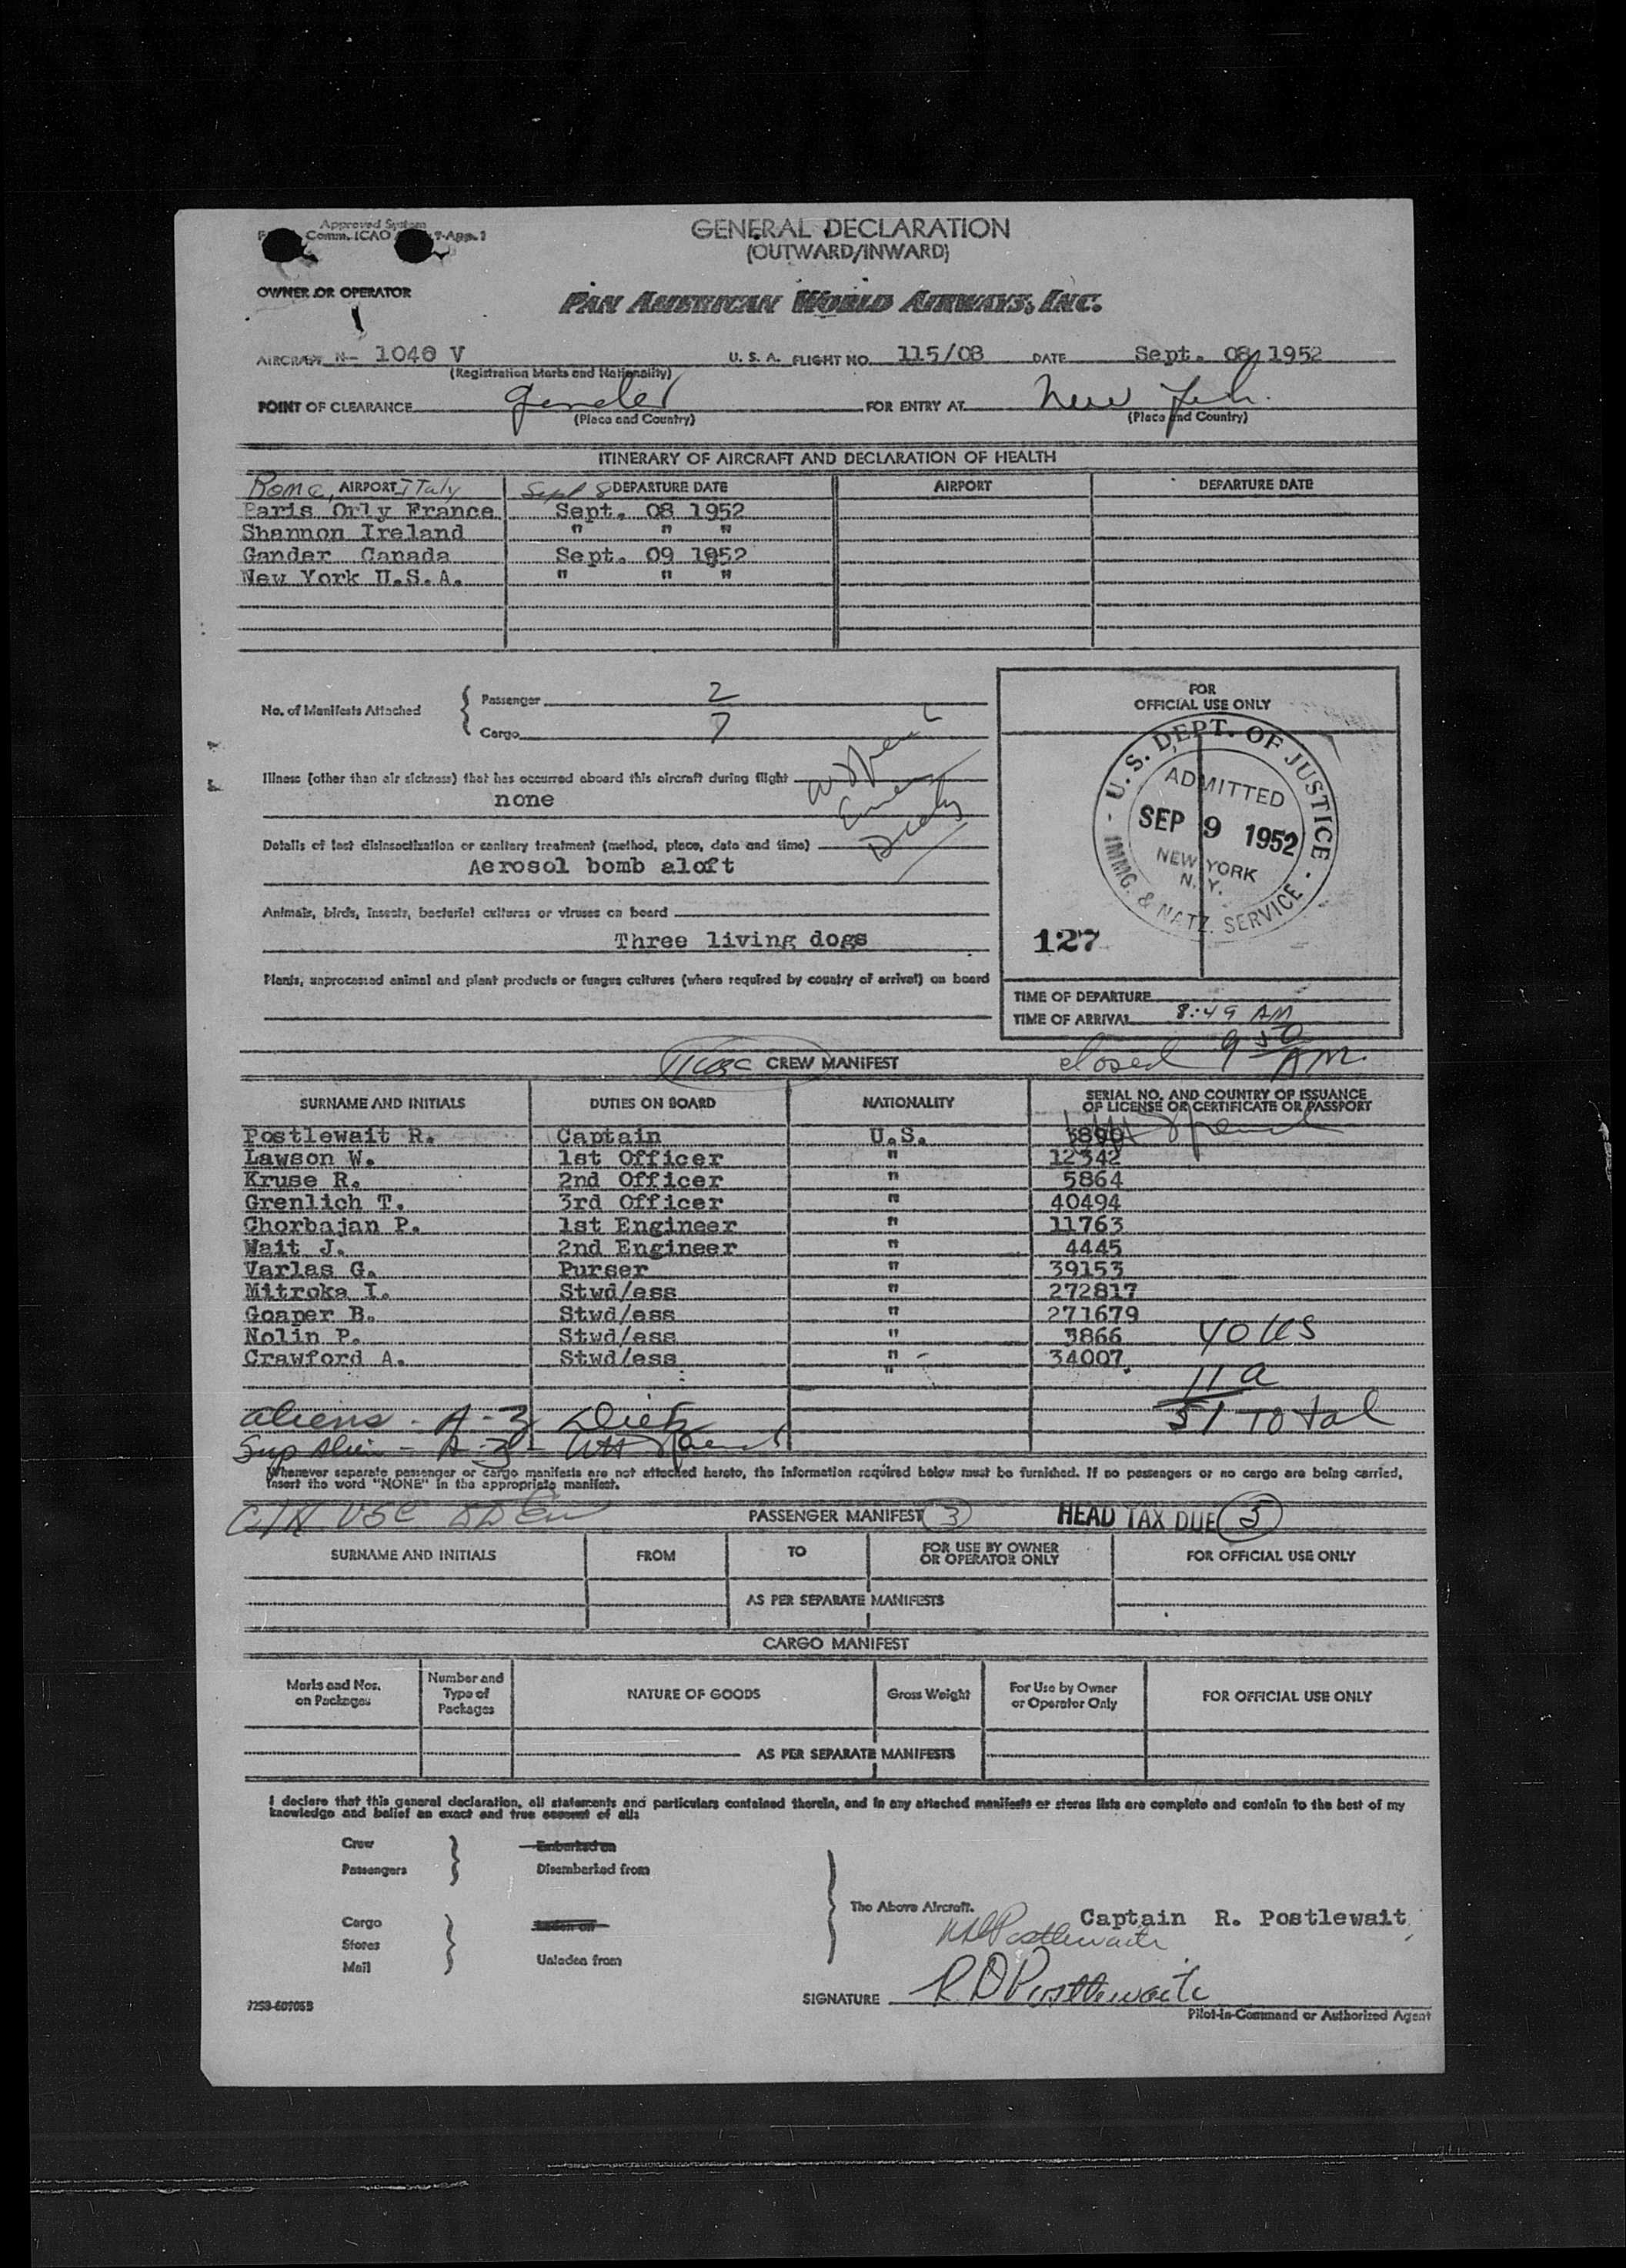 Approved System
Comm. ICAO 9-App. 1
GENERAL DECLARATION
(OUTWARD/INWARD)
OWNER OR OPERATOR
PAN AMERICAN WORLD AIRWAYS, INC.
AIRCRAFT N- 1040 V U. S. A. FLIGHT NO. 115/08 DATE Sept. 08 1952
(Registration Marks and Nationality)
POINT OF CLEARANCE Gander FOR ENTRY AT New York
(Place and Country) (Place and Country)
ITINERARY OF AIRCRAFT AND DECLARATION OF HEALTH
Rome, AIRPORT Italy Sept 8 DEPARTURE DATE AIRPORT DEPARTURE DATE
Paris Orly France Sept. 08 1952
Shannon Ireland " " "
Gander Canada Sept. 09 1952
New York U.S.A. " " "
No. of Manifests Attached { Passenger 2
Cargo 7
FOR
OFFICIAL USE ONLY
U. S. DEPT. OF JUSTICE
ADMITTED
SEP 9 1952
NEW YORK
N. Y.
IMMG. & NATZ. SERVICE
127
Illness (other than air sickness) that has occurred aboard this aircraft during flight
none
Details of last disinsectization or sanitary treatment (method, place, date and time)
Aerosol bomb aloft
Animals, birds, insects, bacterial cultures or viruses on board
Three living dogs
Plants, unprocessed animal and plant products or fungus cultures (where required by country of arrival) on board
TIME OF DEPARTURE
TIME OF ARRIVAL 8:49 AM
closed 9 50 AM
CREW MANIFEST
SURNAME AND INITIALS DUTIES ON BOARD NATIONALITY SERIAL NO. AND COUNTRY OF ISSUANCE
OF LICENSE OR CERTIFICATE OR PASSPORT
Postlewait R. Captain U.S. 3890
Lawson W. 1st Officer " 12342
Kruse R. 2nd Officer " 5864
Grenlich T. 3rd Officer " 40494
Chorbajan P. 1st Engineer " 11763
Wait J. 2nd Engineer " 4445
Varlas G. Purser " 39153
Mitroka I. Stwd/ess " 272817
Goaper B. Stwd/ess " 271679
Nolin P. Stwd/ess " 3866 40 US
Crawford A. Stwd/ess " 34007
"
11 a
aliens - A-3 51 Total
Whenever separate passenger or cargo manifests are not attached hereto, the information required below must be furnished. If no passengers or no cargo are being carried,
insert the word "NONE" in the appropriate manifest.
PASSENGER MANIFEST 3 HEAD TAX DUE 5
SURNAME AND INITIALS FROM TO FOR USE BY OWNER
OR OPERATOR ONLY FOR OFFICIAL USE ONLY
AS PER SEPARATE MANIFESTS
CARGO MANIFEST
Marks and Nos.
on Packages Number and
Type of
Packages NATURE OF GOODS Gross Weight For Use by Owner
or Operator Only FOR OFFICIAL USE ONLY
AS PER SEPARATE MANIFESTS
I declare that this general declaration, all statements and particulars contained therein, and in any attached manifests or stores lists are complete and contain to the best of my
knowledge and belief an exact and true account of all:
Crew Embarked on
Passengers Disembarked from
The Above Aircraft.
Captain R. Postlewait
Cargo Laden on
Stores
Mail Unladen from
SIGNATURE R D Postlewaite
7253-60705B
Pilot-in-Command or Authorized Agent